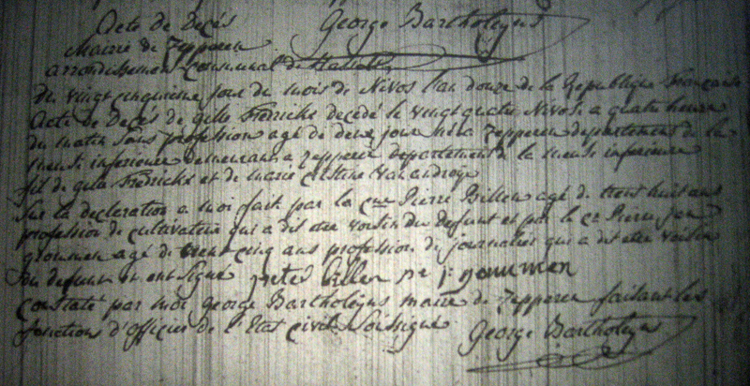 Acte de Décès George Bartholeyns
Mairie de Zepperen
arrondissement communal de hasselt
Du vingt cinquieme jour du mois de Nivos l'an douze de la Republique Francaise
Acte de Décès de gille Fredrickx decedé le vingt quatre Nivos a quatre heure
du matin sans profession agé de deux jour né a Zepperen departement de la
meuse inferieure demeurant a Zepperen departement de la meuse inferieure
fil de gille Fredrickx et de marie cristine Vanandroye
Sur la declaration a moi fait par la cne Pierre Billen agé de trent huit ans
profession de cultivateur qui a dit etre voisin du defunt et par le cn Pierre Jan
groumen agé de trent cinq ans profession de journalier qui a dit etre voisin
du defunt et ont signé peter billen
Constaté par moi george Bartholeyns maire de Zepperen faisant les
fonction d'officier de l'Etat civil Soussigné George Bartholeyns